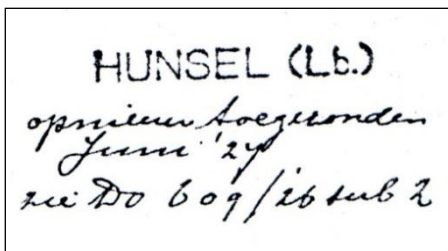 HUNSEL (Lb.)
opnieuw toegezonden
Juni '27
zie Do 609/26 sub 2